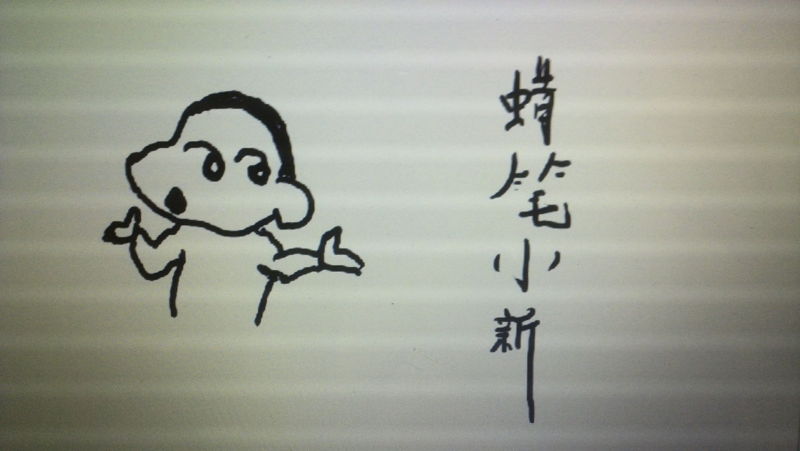 蜡笔小新